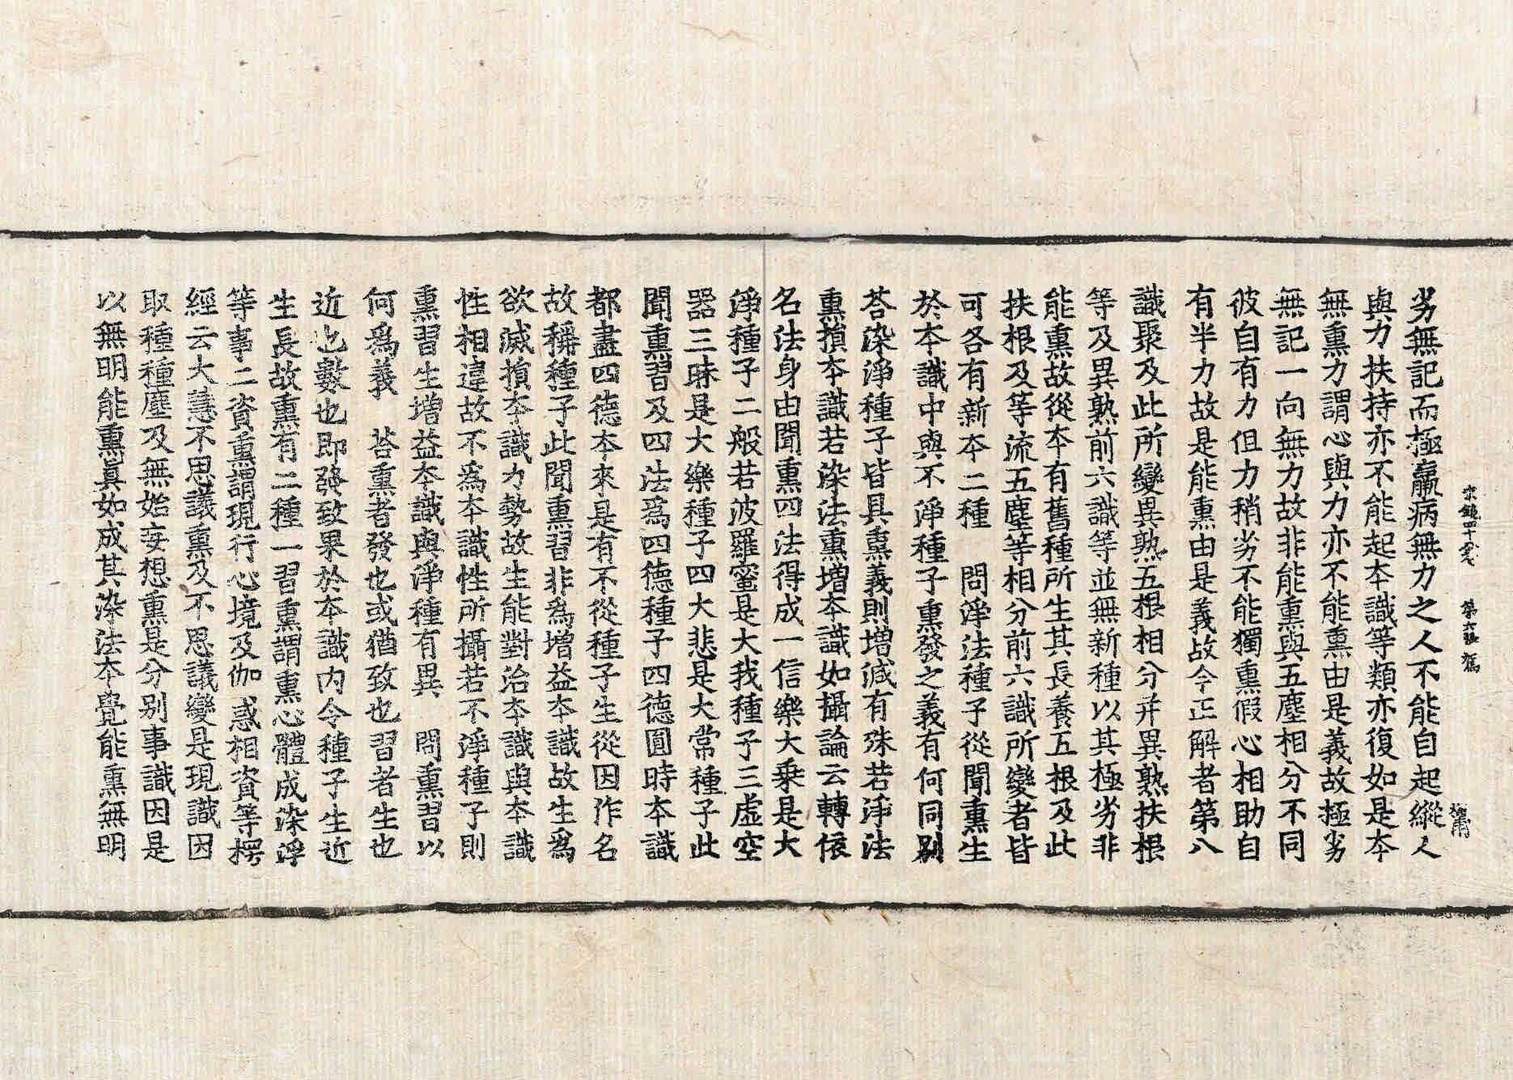 宗鏡四十八
第六張
劣無記而極羸病無力之人不能自起縱人
與力扶持亦不能起本識等類亦復如是本
無熏力謂心與力亦不能熏由是義故極劣
無記一向無力故非能熏與五塵相分不同
彼自有力但力稍劣不能獨熏假心相助自
有半力故是能熏由是義故今正解者第八
識聚及此所變異熟五根相分并異熟扶根
等及異熟前六識等並無新種以其極劣非
能熏故從本有舊種所生其長養五根及此
扶根及等流五塵等相分前六識所變者皆
可各有新本二種　問淨法種子從聞熏生
於本識中與不淨種子熏發之義有何同別
荅染淨種子皆具熏義則增減有殊若淨法
熏損本識若染法熏增本識如攝論云轉依
名法身由聞熏四法得成一信樂大乘是大
淨種子二般若波羅蜜是大我種子三虛空
器三昧是大樂種子四大悲是大常種子此
聞熏習及四法爲四德種子四德圓時本識
都盡四德本來是有不從種子生從因作名
故稱種子此聞熏習非爲增益本識故生爲
欲減損本識力勢故生能對治本識與本識
性相違故不爲本識性所攝若不淨種子則
熏習生增益本識與淨種有異　問熏習以
何爲義　荅熏者發也或猶致也習者生也
近也數也即發致果於本識內令種子生近
生長故熏有二種一習熏謂熏心體成染淨
等事二資熏謂現行心境及伽惑相資等楞
經云大慧不思議熏及不思議變是現識因
取種種塵及無始妄想熏是分別事識因是
以無明能熏真如成其染法本覺能熏無明